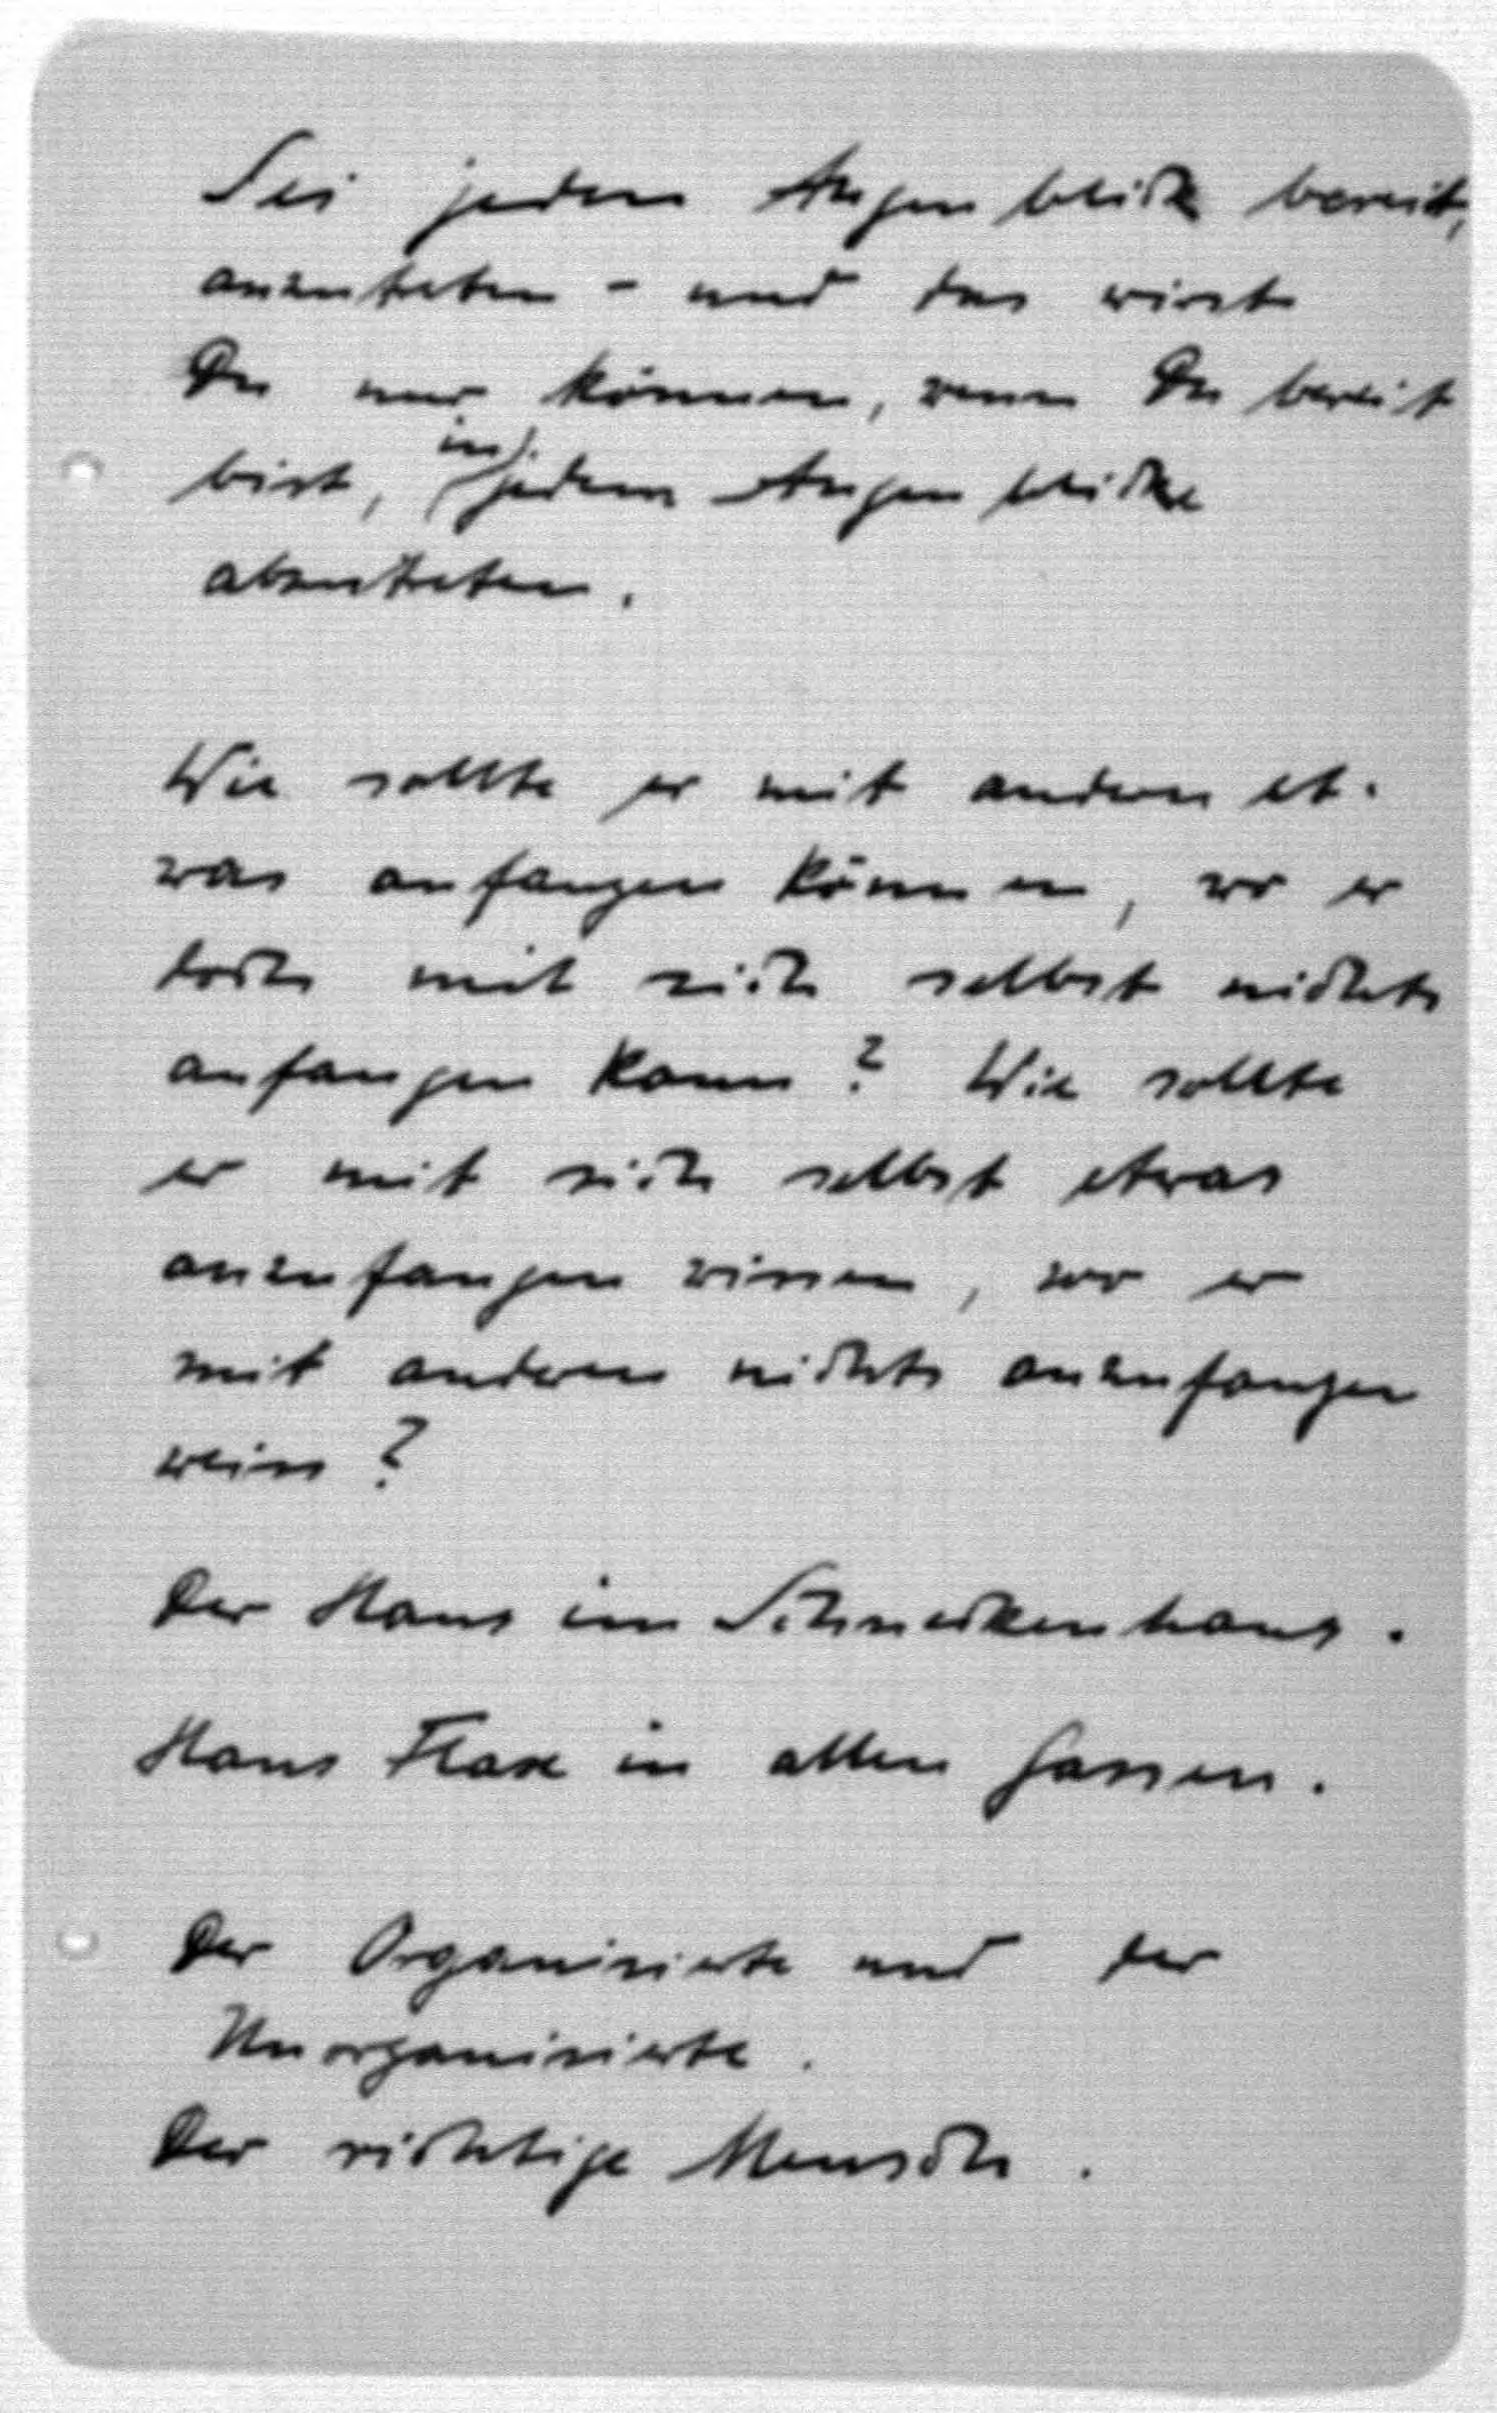 Sei jeden Augenblick bereit,
anzutreten - und das wirst
Du nur können, wenn Du bereit
bist, in jedem Augenblicke
abzutreten.
Wie sollte er mit andern et-
was anfangen können, wo er
doch mit sich selbst nichts
anfangen kann? Wie sollte
er mit sich selbst etwas
anzufangen wissen, wo er
mit anderen nichts anzufangen
weiss?
Der Hans im Schneckenhaus.
Hans Flax in allen Gassen.
Der Organisierte und der
Unorganisierte.
Der richtige Mensch.